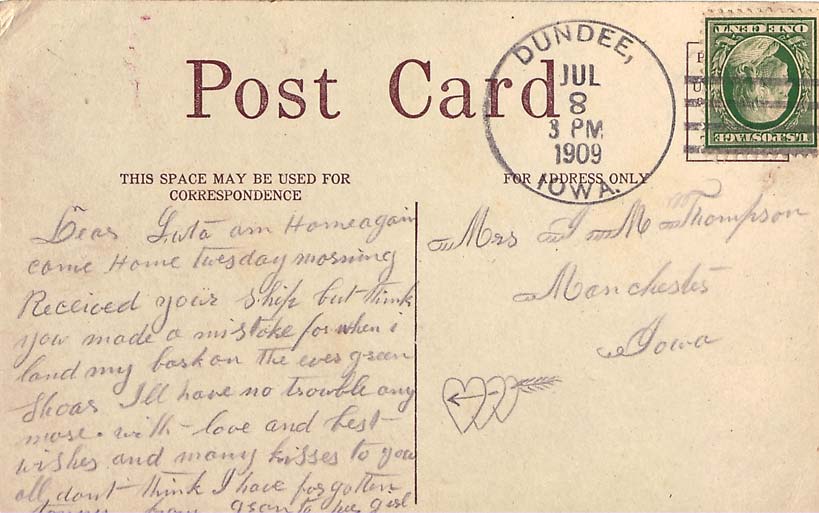 Post Card
DUNDEE,
JUL
8
3 PM
1909
IOWA.
ONE CENT
U.S. POSTAGE
THIS SPACE MAY BE USED FOR
CORRESPONDENCE
FOR ADDRESS ONLY
Dear am Home again
came Home tuesday morning
Received your ship but think
you made a mistake for when i
land my bark on the ever green
Shoar Ill have no trouble any
more. with love and best
wishes and many kisses to you
all, dont think I have forgotten
Mrs I M Thompson
Manchester
Iowa